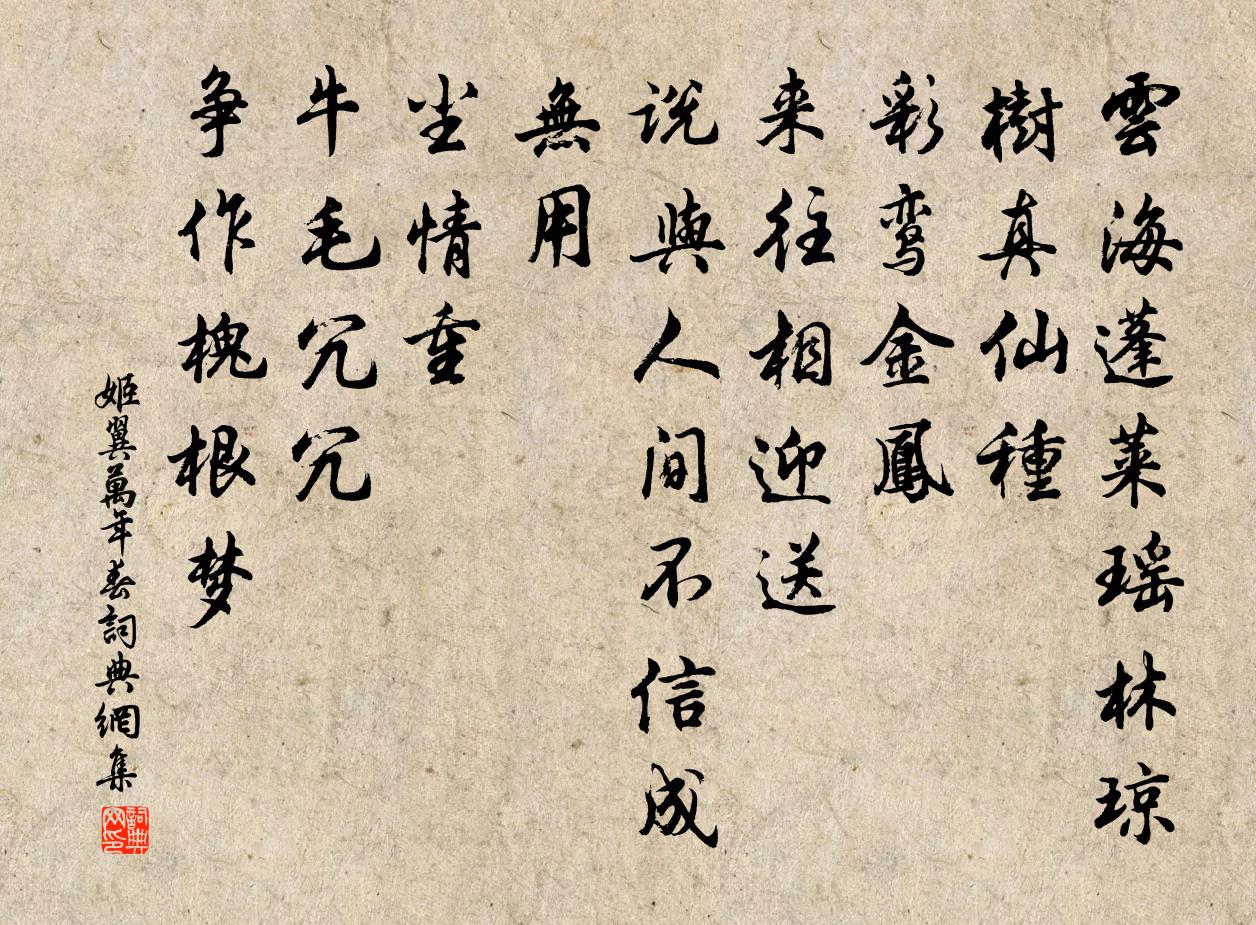 雲海蓬莱瑶林琼
樹真仙種
彩鸾金鳳
来往相迎送
説與人间不信成
無用
尘情重
牛毛冗冗
争作槐根梦
姬翼萬年春詞典網集
詞典网印